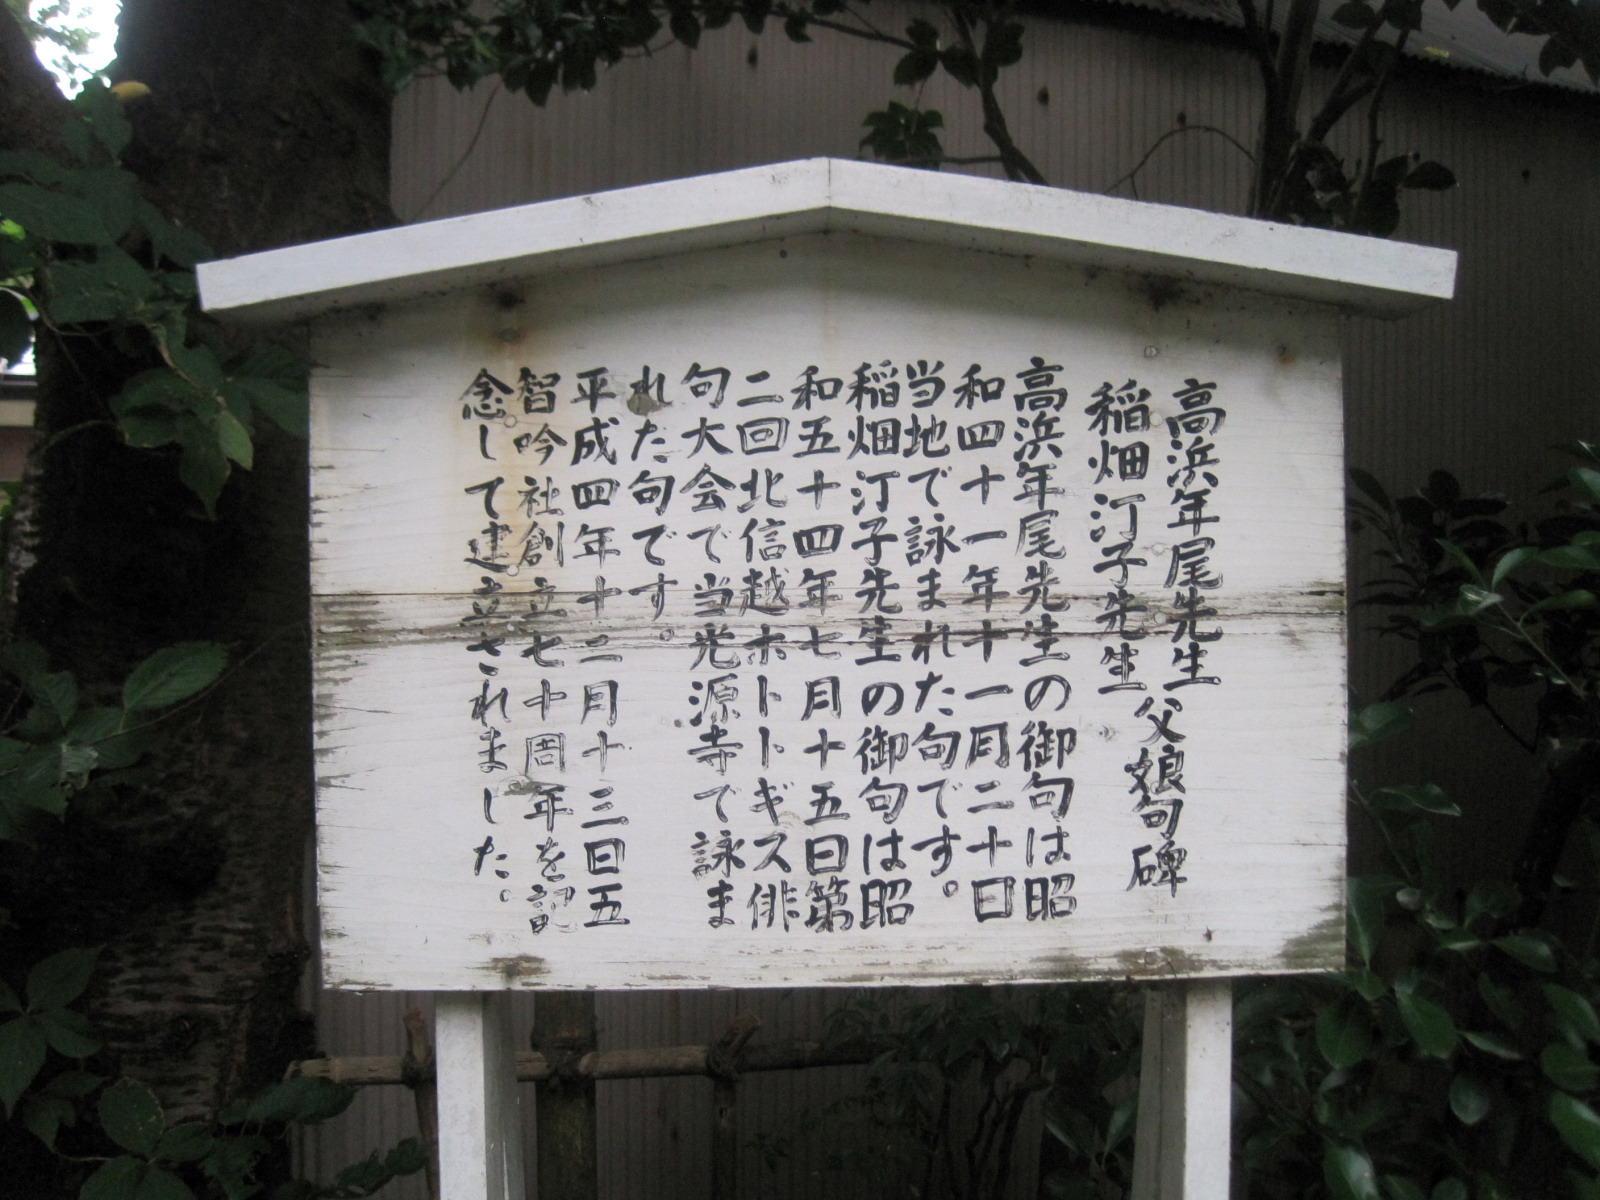 高浜年尾先生
稲畑汀子先生
父娘句碑
高浜年尾先生の御句は昭
和四十一年十一月二十日
当地で詠まれた句です。
稲畑汀子先生の御句は昭
和五十四年七月十五日第
二回北信越ホトトギス俳
句大会で当光源寺で詠ま
れた句です。
平成四年十二月十三日五
智吟社創立七十周年を記
念して建立されました。